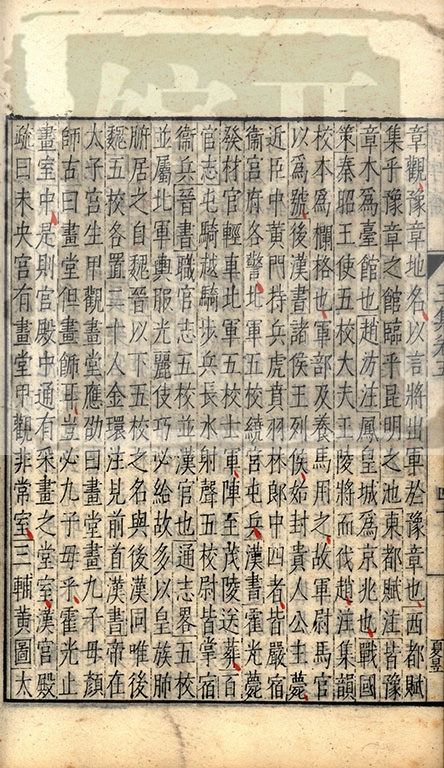 章觀豫章地名以言將出軍於豫章也西都賦
集乎豫章之館臨乎昆明之池東都賦注皆豫
章木爲臺館也趙汸注鳳皇城爲京兆也戰國
策秦昭王使五校大夫王陵將而伐趙注集韻
校本爲欄格也軍部及養馬用之故軍尉馬官
以爲號後漢書諸侯王列候始封貴人公主薨
近臣中黃門持兵虎賁羽林郎中四者皆嚴宿
衞宮府各警北軍五校繞宮屯兵漢書霍光薨
發材官輕車北軍五校士軍陣至茂陵送葬百
官志屯騎越騎步兵長水射聲五校尉皆掌宿
衞兵晉書職官志五校並漢官也通志畧五校
並屬北軍輿服光麗伎巧必給故多以皇族肺
腑居之自魏晉以下五校之名與後漢同唯後
魏五校各置二十人金環注見前首漢書帝在
太子宮生甲觀畫堂應劭曰畫堂畫九子母顏
師古曰畫堂但畫飾耳豈必九子母乎霍光止
畫室中是則宮殿中通有采畫之堂室漢宮殿
疏曰未央宮有畫堂甲觀非常室三輔黃圖太